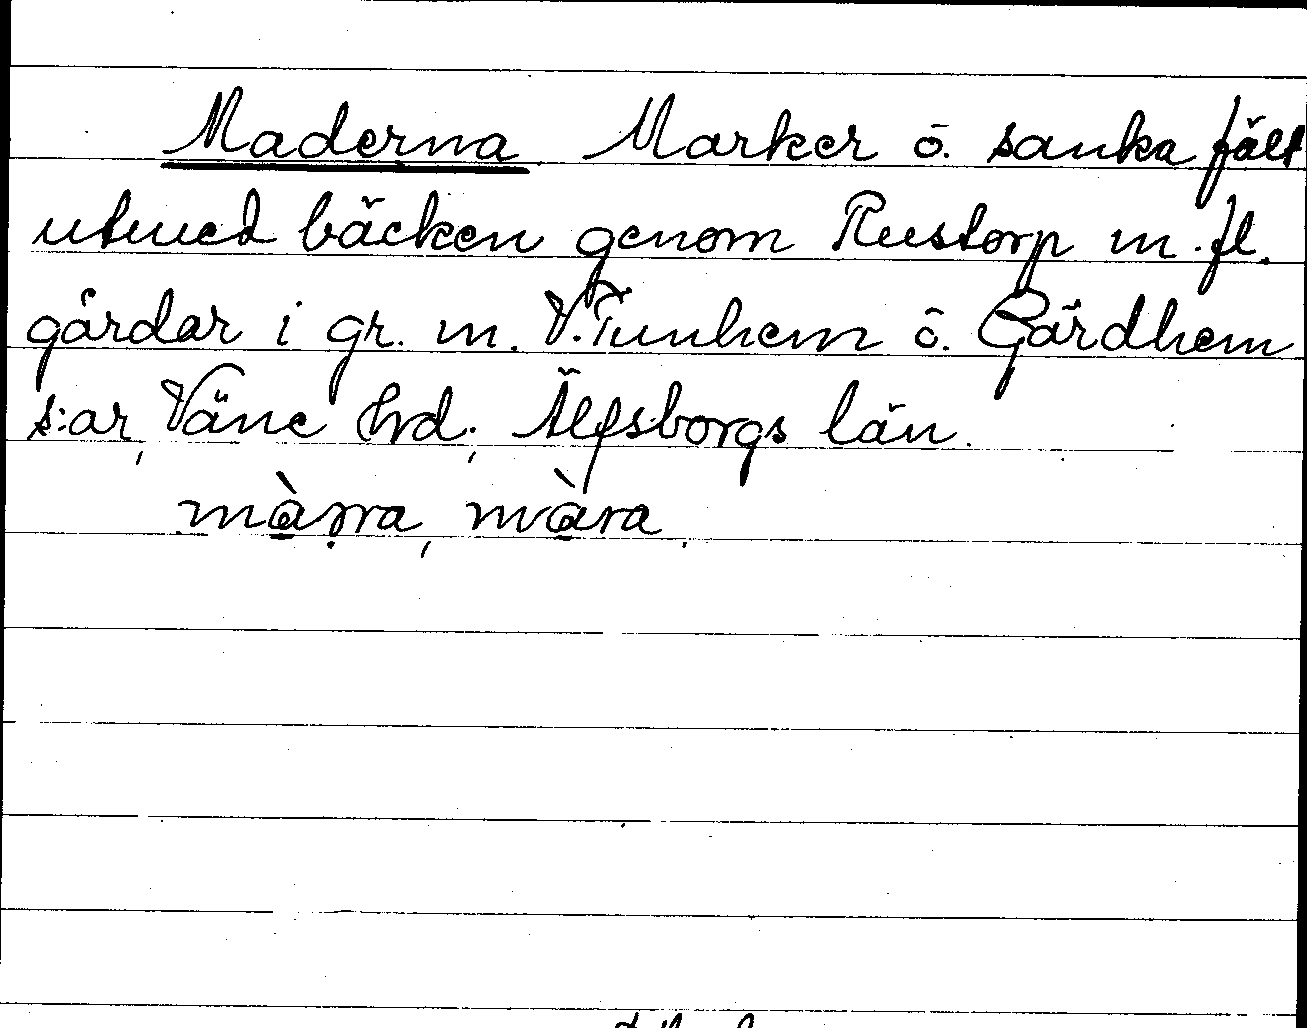 Maderna Marker o. sanka fält
utmed bäcken genom Rustorp m. fl.
gårdar i gr. m. V. Tunhem o. Gärdhem
s:ar, Väne hrd; Älfsborgs län.
màṇra, màra.